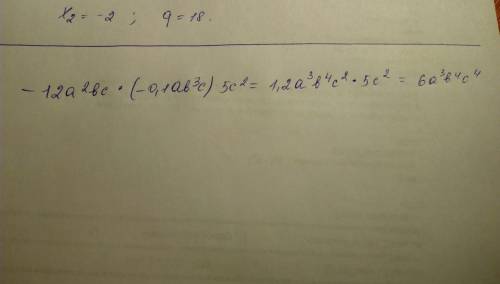 x₂ = -2 ; q = 18.
- 12a²bc · (-0,1ab³c) 5c² = 1,2a³b⁴c² · 5c² = 6a³b⁴c⁴